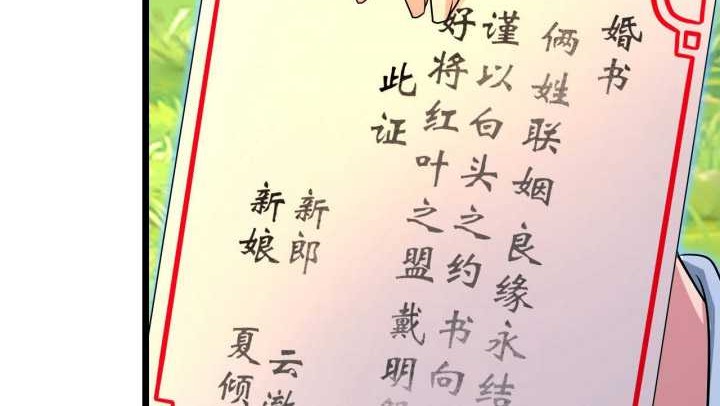 婚书
俩姓联姻良缘永结
谨以白头之约书向
好将红叶之盟戴明
此证
新郎 云澈
新娘 夏倾